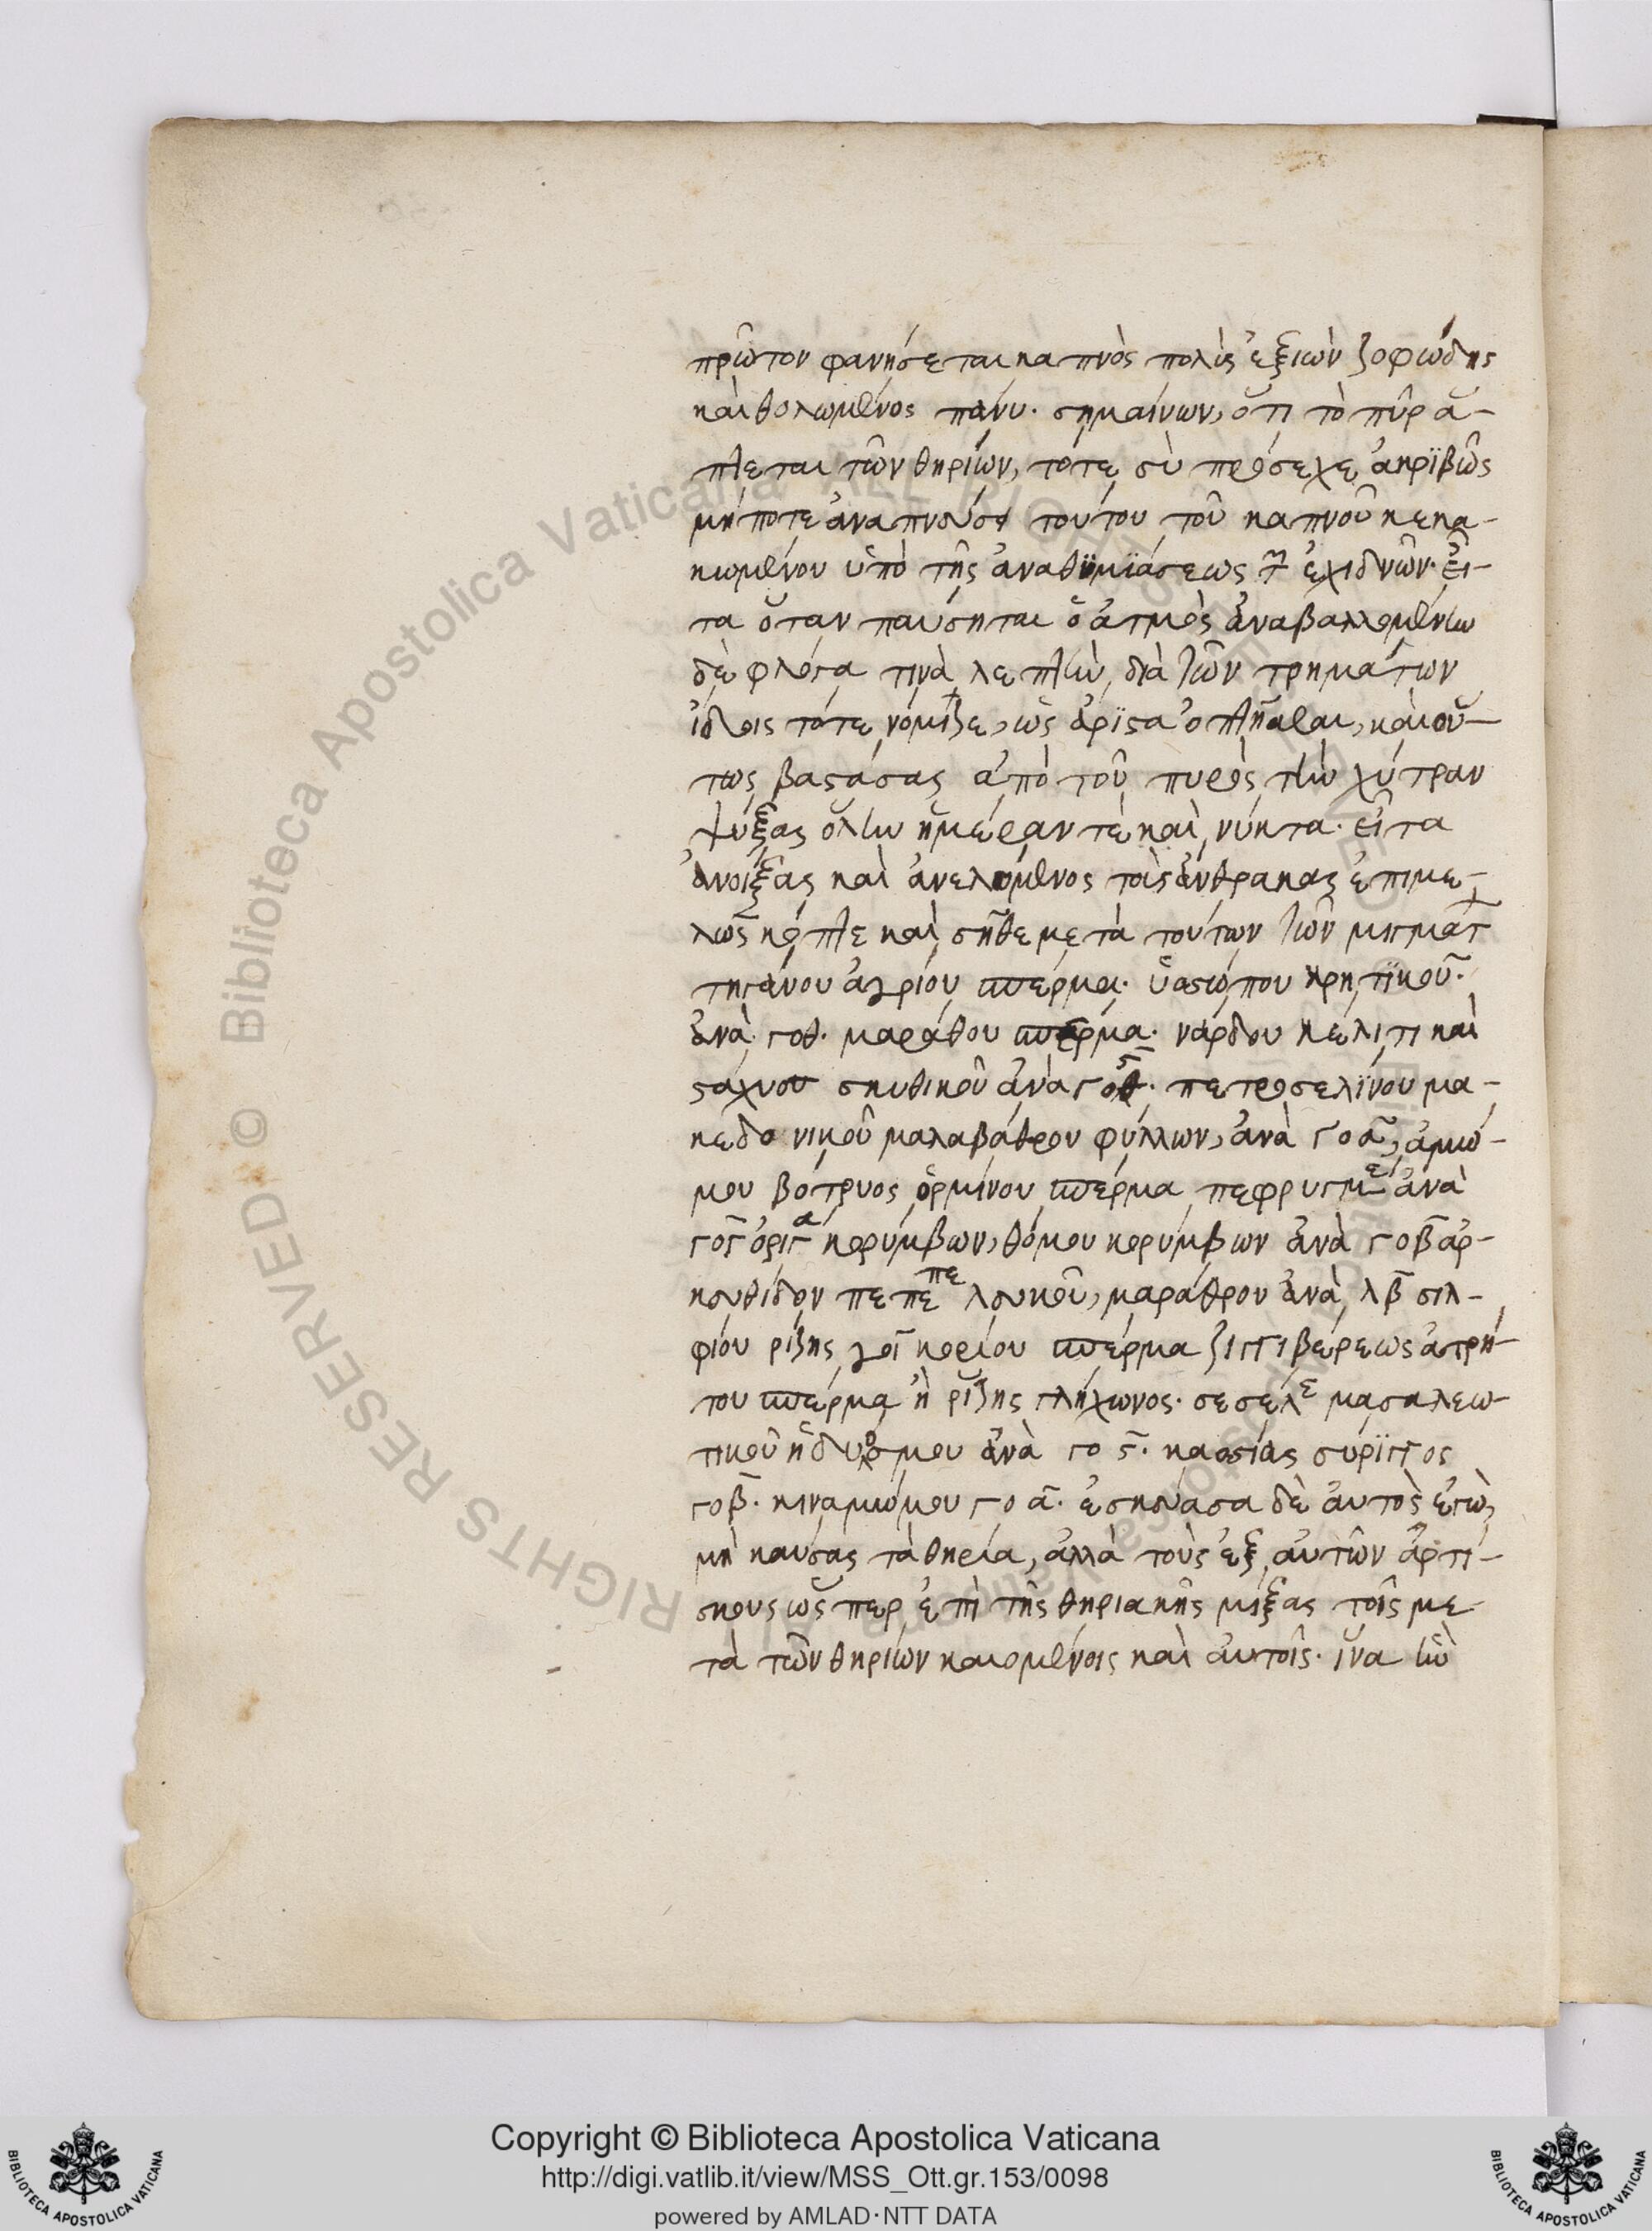 πρῶτον φανήσεται καπνὸς πολὺς ἐξιὼν ζοφώδης
καὶ θολωμένος πάνυ. σημαίνων, ὅτι τὸ πῦρ ἅ-
πτεται τῶν θηρίων, τότε σὺ πρόσεχε ἀκρϊβῶς
μήποτε ἀναπνεύσῃ τούτου τοῦ καπνοῦ κεκα-
κωμένου ὑπὸ τῆς ἀναθϋμϊάσεως τῶν ἐχιδνῶν. εἶ-
τα ὅταν παύσηται ὁ ἀτμὸς ἀναβαλλομένην
δὲ φλόγα τινὰ λεπτὴν διὰ τῶν τρημάτων
ἴδοις τότε νόμιζε, ὡς ἄρϊστα ὀπτῆσθαι, καὶ οὕ-
τως βαστάσας ἀπὸ τοῦ πυρὸς τὴν χύτραν
ψύξας ὅλην ἡμέραν τὲ καὶ νύκτα. εἶτα
ἀνοίξας καὶ ἀνελόμενος τοὺς ἄνθρακας ἐπιμε-
λῶς κόπτε καὶ σῆθε μετὰ τούτων τῶν μιγμάτ
πηγάνου ἀγρίου σπέρμα. ὑσσώπου κρητϊκοῦ.
ἀνὰ γοθ. μαράθου σπέρμα. νάρδου κελιτι καὶ
στάχυου σκυθικοῦ ἀνὰ γοθ. πετροσελϊνου μα-
κεδονικοῦ μαλαβάθρου φύλλων, ἀνὰ γο α, ἀμώ-
μου βότρυος ὁρμίνου σπέρμα πεφρυγμε ἀνὰ
γος ὀριγα κορύμβων, θύμου κορύμβων ἀνὰ γο β ἀρ-
κουθίδον πεπεπε λευκοῦ, μαράθρον ἀνὰ λβ σιλ-
φίου ρίζης γοι κορίου σπέρμα ζιγγιβέρεως ἀτρή-
του σπέρμα ἢ ρίζης γλήχωνος. σεσέλε μασαλεω-
τικοῦ ἡδυόσμου ἀνὰ γο ς. κασσίας σύρϊγγος
γο β. κιναμώμου γο α. ἐσκεύασα δὲ αὐτὸς ἐγὼ,
μὴ καύσας τὰ θηρία, ἀλλὰ τοὺς ἐξ αὐτῶν ἀρτί-
σκους ὥσπερ ἐπὶ τῆς θηριακῆς μίξας τοῖς με
τὰ τῶν θηρίων καιομένοις καὶ αὐτοῖς. ἵνα ἢν
Copyright © Biblioteca Apostolica Vaticana
http://digi.vatlib.it/view/MSS_Ott.gr.153/0098
powered by AMLAD·NTT DATA